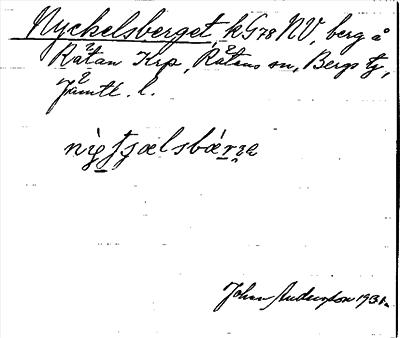 Nyckelsberget, kG78 NV, berg å
Rätan Krp, Rätans sn, Bergs tg,
Jämtl. l.
Johan Andersson 1931.